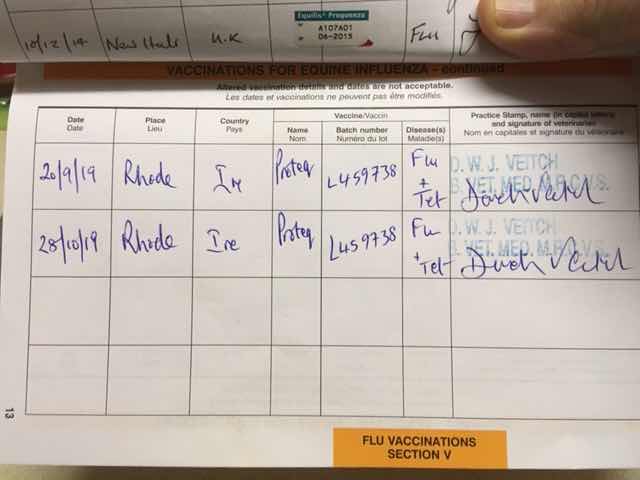 Equilis® Prequenza
A107A01
06-2015
10/12/14 New Hall U.K Flu
VACCINATIONS FOR EQUINE INFLUENZA - continued
Altered vaccination details and dates are not acceptable.
Les dates et vaccinations ne peuvent pas être modifiés.
Date
Date
Place
Lieu
Country
Pays
Vaccine/Vaccin
Name
Nom
Batch number
Numéro du lot
Disease(s)
Maladie(s)
Practice Stamp, name (in capital letters)
and signature of veterinarian
Nom en capitales et signature du vétérinaire
20/9/19 Rhode Ire Proteq L459738 Flu
+
Tet
D. W. J. VEITCH
VET. MED. M.R.C.V.S.
28/10/19 Rhode Ire Proteq L459738 Flu
+
Tet
D. W. J. VEITCH
VET. MED. M.R.C.V.S.
13
FLU VACCINATIONS
SECTION V